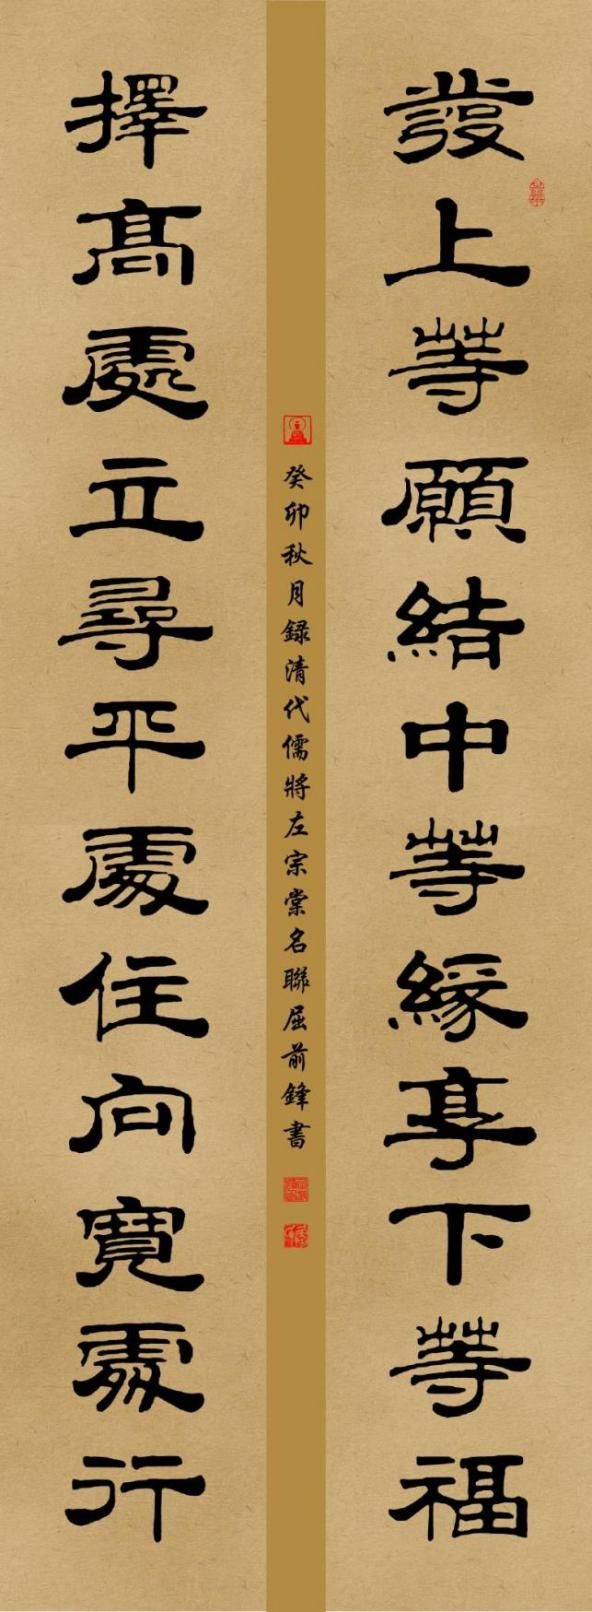 發上等願結中等緣享下等福
癸卯秋月録清代儒將左宗棠名聯屈前鋒書
擇高處立尋平處住向寬處行